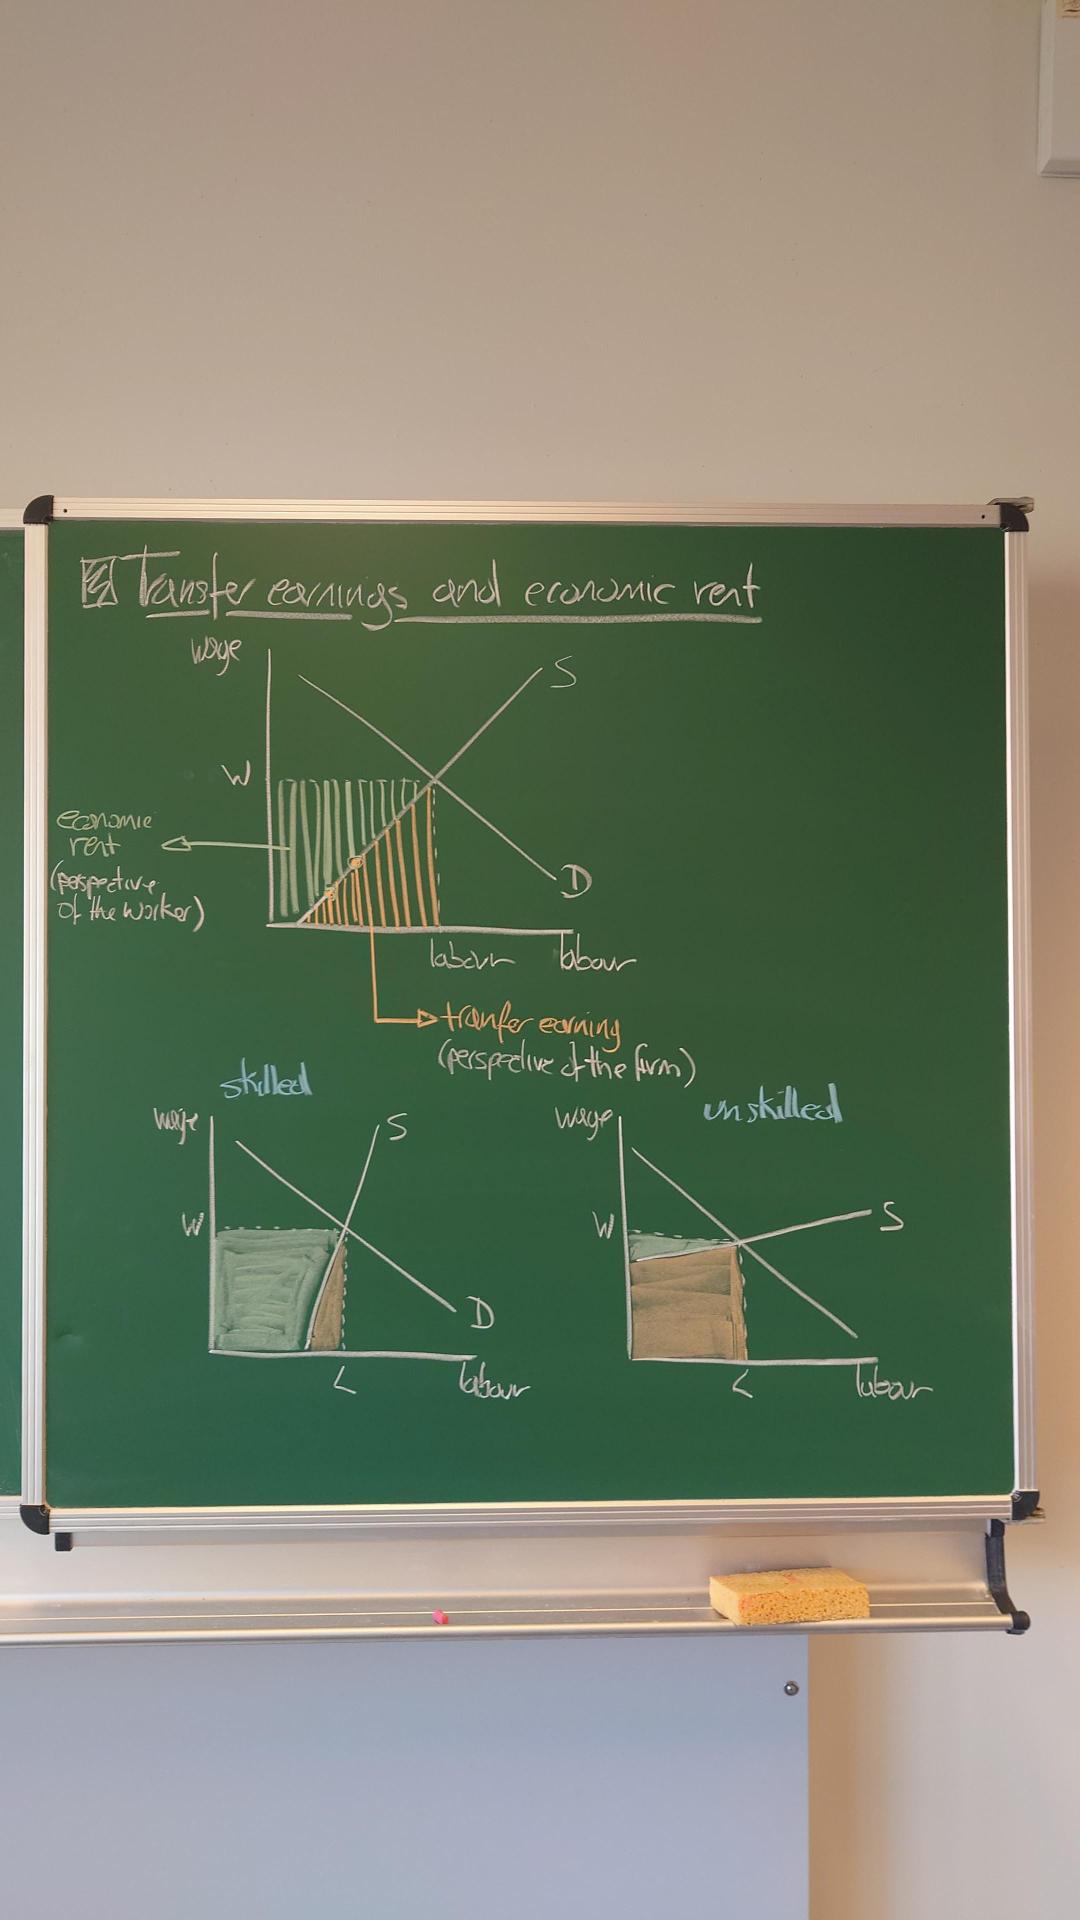 Transfer earnings and economic rent
wage
S
W
economic
rent
(perspective
of the worker)
D
labour labour
tranfer earning
(perspective of the firm)
skilled
wage
S
W
D
L
labour
unskilled
wage
W
S
L
labour